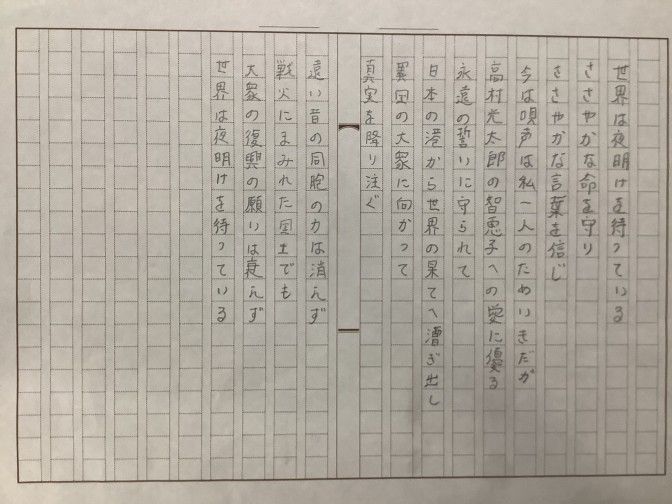 世界は夜明けを待っている
ささやかな命を守り
ささやかな言葉を信じ
今は唄声は私一人のためいきだが
高村光太郎の智恵子への愛に優る
永遠の誓いに守られて
日本の港から世界の果てへ漕ぎ出し
異国の大衆に向かって
真実を降り注ぐ
遠い昔の同胞の力は消えず
戦火にまみれた国土でも
大衆の復興の願いは衰えず
世界は夜明けを待っている